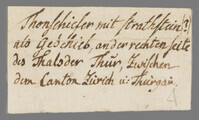 Thonschiefer mit Strahlstein?
als Geschieb, an der rechten Seite
des Thals der Thur, zwischen
dem Canton Zürich u: Thurgau.